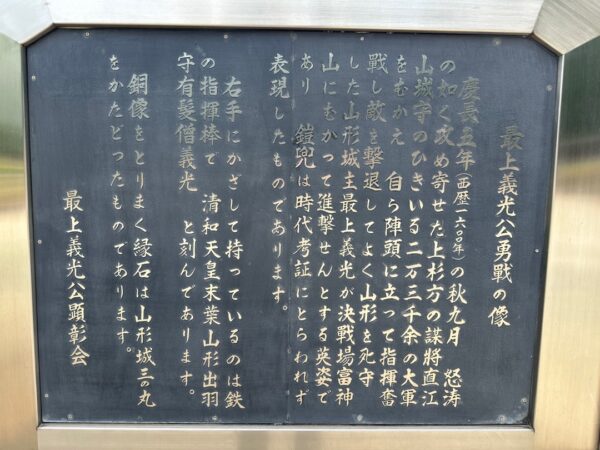 最上義光公勇戦の像
慶長五年(西暦一六〇〇年)の秋九月 怒涛
の如く攻め寄せた上杉方の謀将直江
山城守のひきいる二万三千余の大軍
をむかえ 自ら陣頭に立って指揮奮
戦し敵を撃退してよく山形を死守
した山形城主最上義光が決戦場富神
山にむかって進撃せんとする英姿で
あり 鎧兜は時代考証にとらわれず
表現したものであります。
右手にかざして持っているのは鉄
の指揮棒で 清和天皇末葉山形出羽
守有髪僧義光 と刻んであります。
銅像をとりまく縁石は山形城三の丸
をかたどったものであります。
最上義光公顕彰会